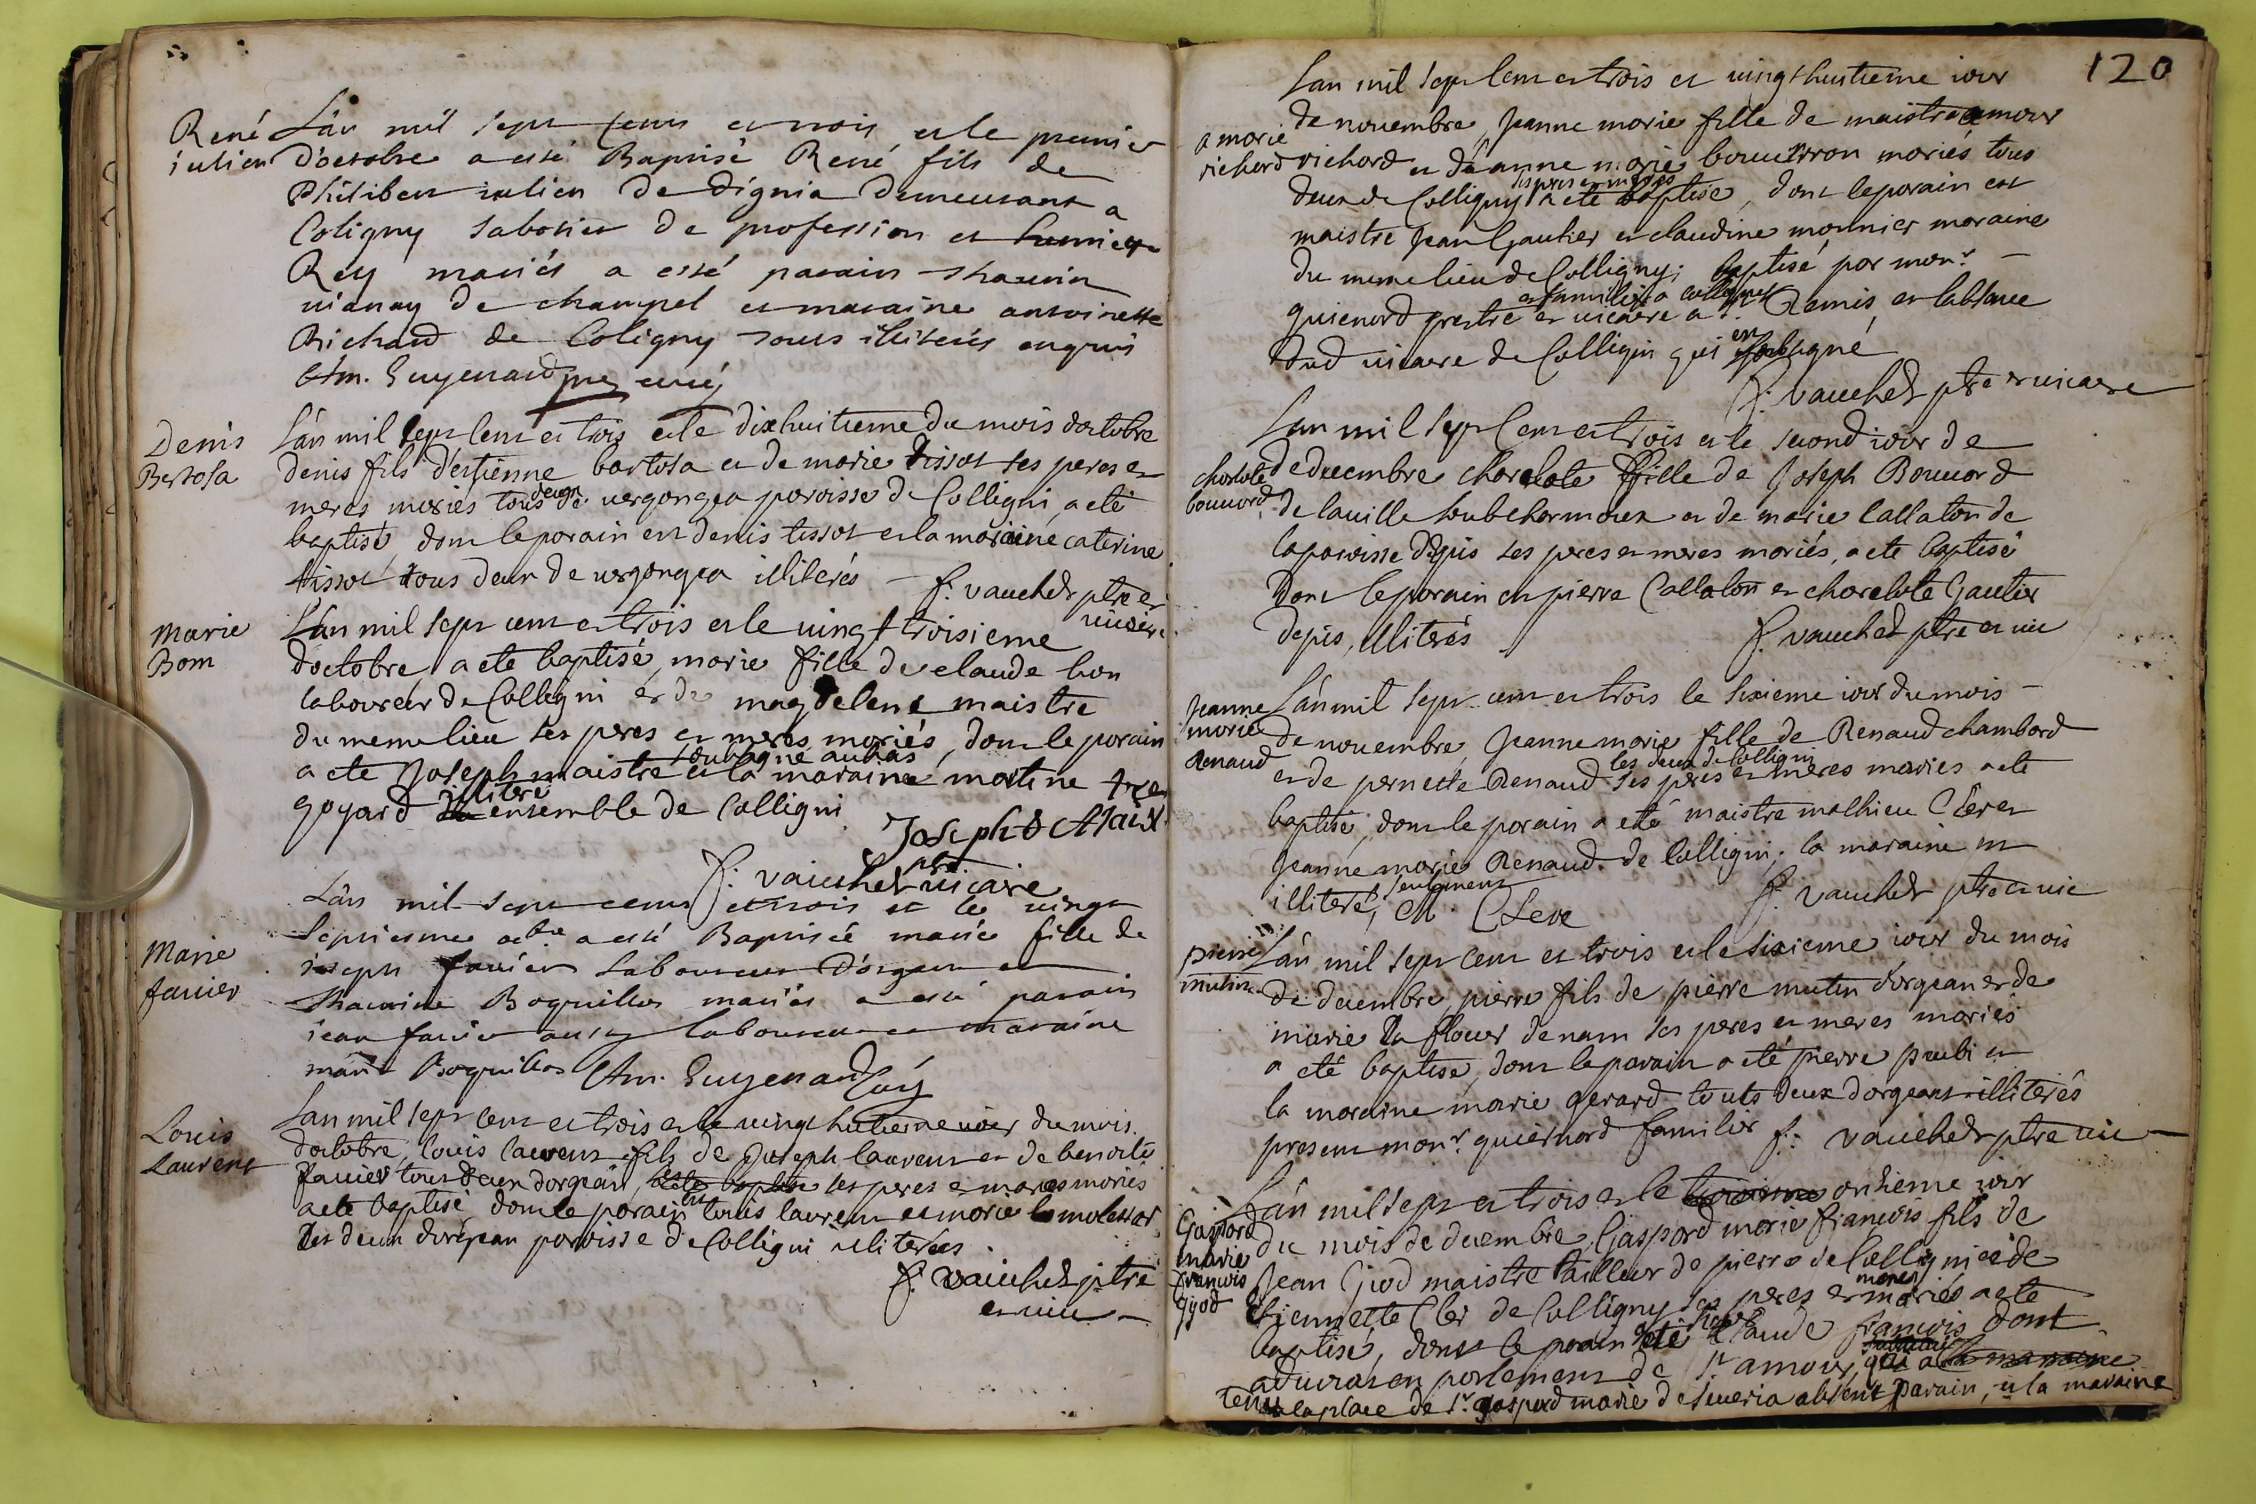 René
iulien
Lân mil sept cents et trois et le premier
d'octobre a esté Baptisé René fils de
Philibert iulien de dignia demeurant a
Coligny sabotier de profession et
Rey mariés a esté parain
uianay de champel et maraine antoinette
Richard de Coligny tous illiterés enquis
Am. Guyenard curé
Denis
Bertosa
Lân mil sept cent et trois et le dixhuitieme du mois doctobre
denis fils d'estienne bartosa et de marie tissot ses peres et
meres mariés tous deux de uergongea paroisse de Colligni, a eté
baptisé, dont le parain est denis tissot et la maraine caterine
tissot tous deux de uergongea illiterés f. vauchet ptre et
uicaire
Marie
Bom
Lân mil sept cent et trois et le uingt troisieme
doctobre, a eté baptisé, marie fille de claude bon
laboureur de Colligni et de magdelene maistre
du meme lieu ses peres et meres mariés, dont le parain
a eté Joseph maistre soubsigné au bas et la maraine martine
goyard illiteré ensemble de Colligni
Joseph
f. vauchet ptre uicaire
Marie
fauier
Lân mil sept cents et trois et le uingt
septiesme octbre a esté Baptisée marie fille de
ioseph fauier laboureur d'orgean et
Boquillos mariés a esté parain
iean fauier aussy laboureur et maraine
marie Boquillos Am. Guyenard curé
Louis
Laurent
Lan mil sept cent et trois et le uingt huitieme iour du mois
doctobre, louis laurent fils de Joseph laurent et de benoite
fauier tous deux dorgean, ses peres et meres mariés
a eté baptisé dont le parain est louis laurent et marie la molessar
les deux dorgean paroisse de Colligni illiterées
f. vauchet ptre
et uic
120
Lan mil sept cent et trois et uingt huitieme iour
a marie
richard
de nouembre, Jeanne marie fille de maistre amour
richard et de anne marie bouuerron mariés tous
deux de Colligny ses peres et meres a eté baptisé, dont le parain est
maistre Jean Gautier et claudine monnier maraine
du meme lieu de Colligny; baptisé par monr.
guienard prestre et familier a colligny et uicaire a St. Remis, en labsence
dud uicaire de Colligni qui en soubsigné
f. vauchet ptre et uicaire
charlote
bouuard
Lan mil sept cent et trois et le second iour de
de decembre charelote fille de Joseph Bouuard
de lauille soubcharmoux et de marie Callaton de
la paroisse depis ses peres et meres mariés, a eté baptisé
dont le parain est pierre Callaton et charelote Gautier
depis, illiterés f. vauchet ptre et uic
Jeanne
marie
Renaud
Lân mil sept cent et trois le sixieme iour du mois
de nouembre, Jeanne marie fille de Renaud chambard
et de pernette Renaud les deux de Colligni ses peres et meres mariés a eté
baptisé, dont le parain a eté maistre mathieu Clerc et
Jeanne marie Renaud de Colligni; la maraine est
illiteré, seulement M. Clerc f. vauchet ptre et uic
pierre
mutin
Lân mil sept cent et trois et le sixieme iour du mois
de decembre, pierre fils de pierre mutin dorgean et de
marie la flour denam ses peres et meres mariés
a eté baptisé, dont le parain a eté pierre paubi et
la maraine marie gerard touts deux dorgeant illiterés
present monr. guiernard familier f: vauchet ptre uic
Gaspard
marie
francois
gyod
Lân mil sept et trois et le onsieme iour
du mois de decembre, Gaspard marie francois fils de
Jean Gyod maistre tailleur de pierre de Colligni et de
Etiennette Cler de Colligny ses peres et meres mariés a eté
baptisé, dont le parain a eté claude francois dont
aduocat en parlement de St. amour, qui a
tenu la place de Sr. gaspard marie de seueria absent parain, et la maraine